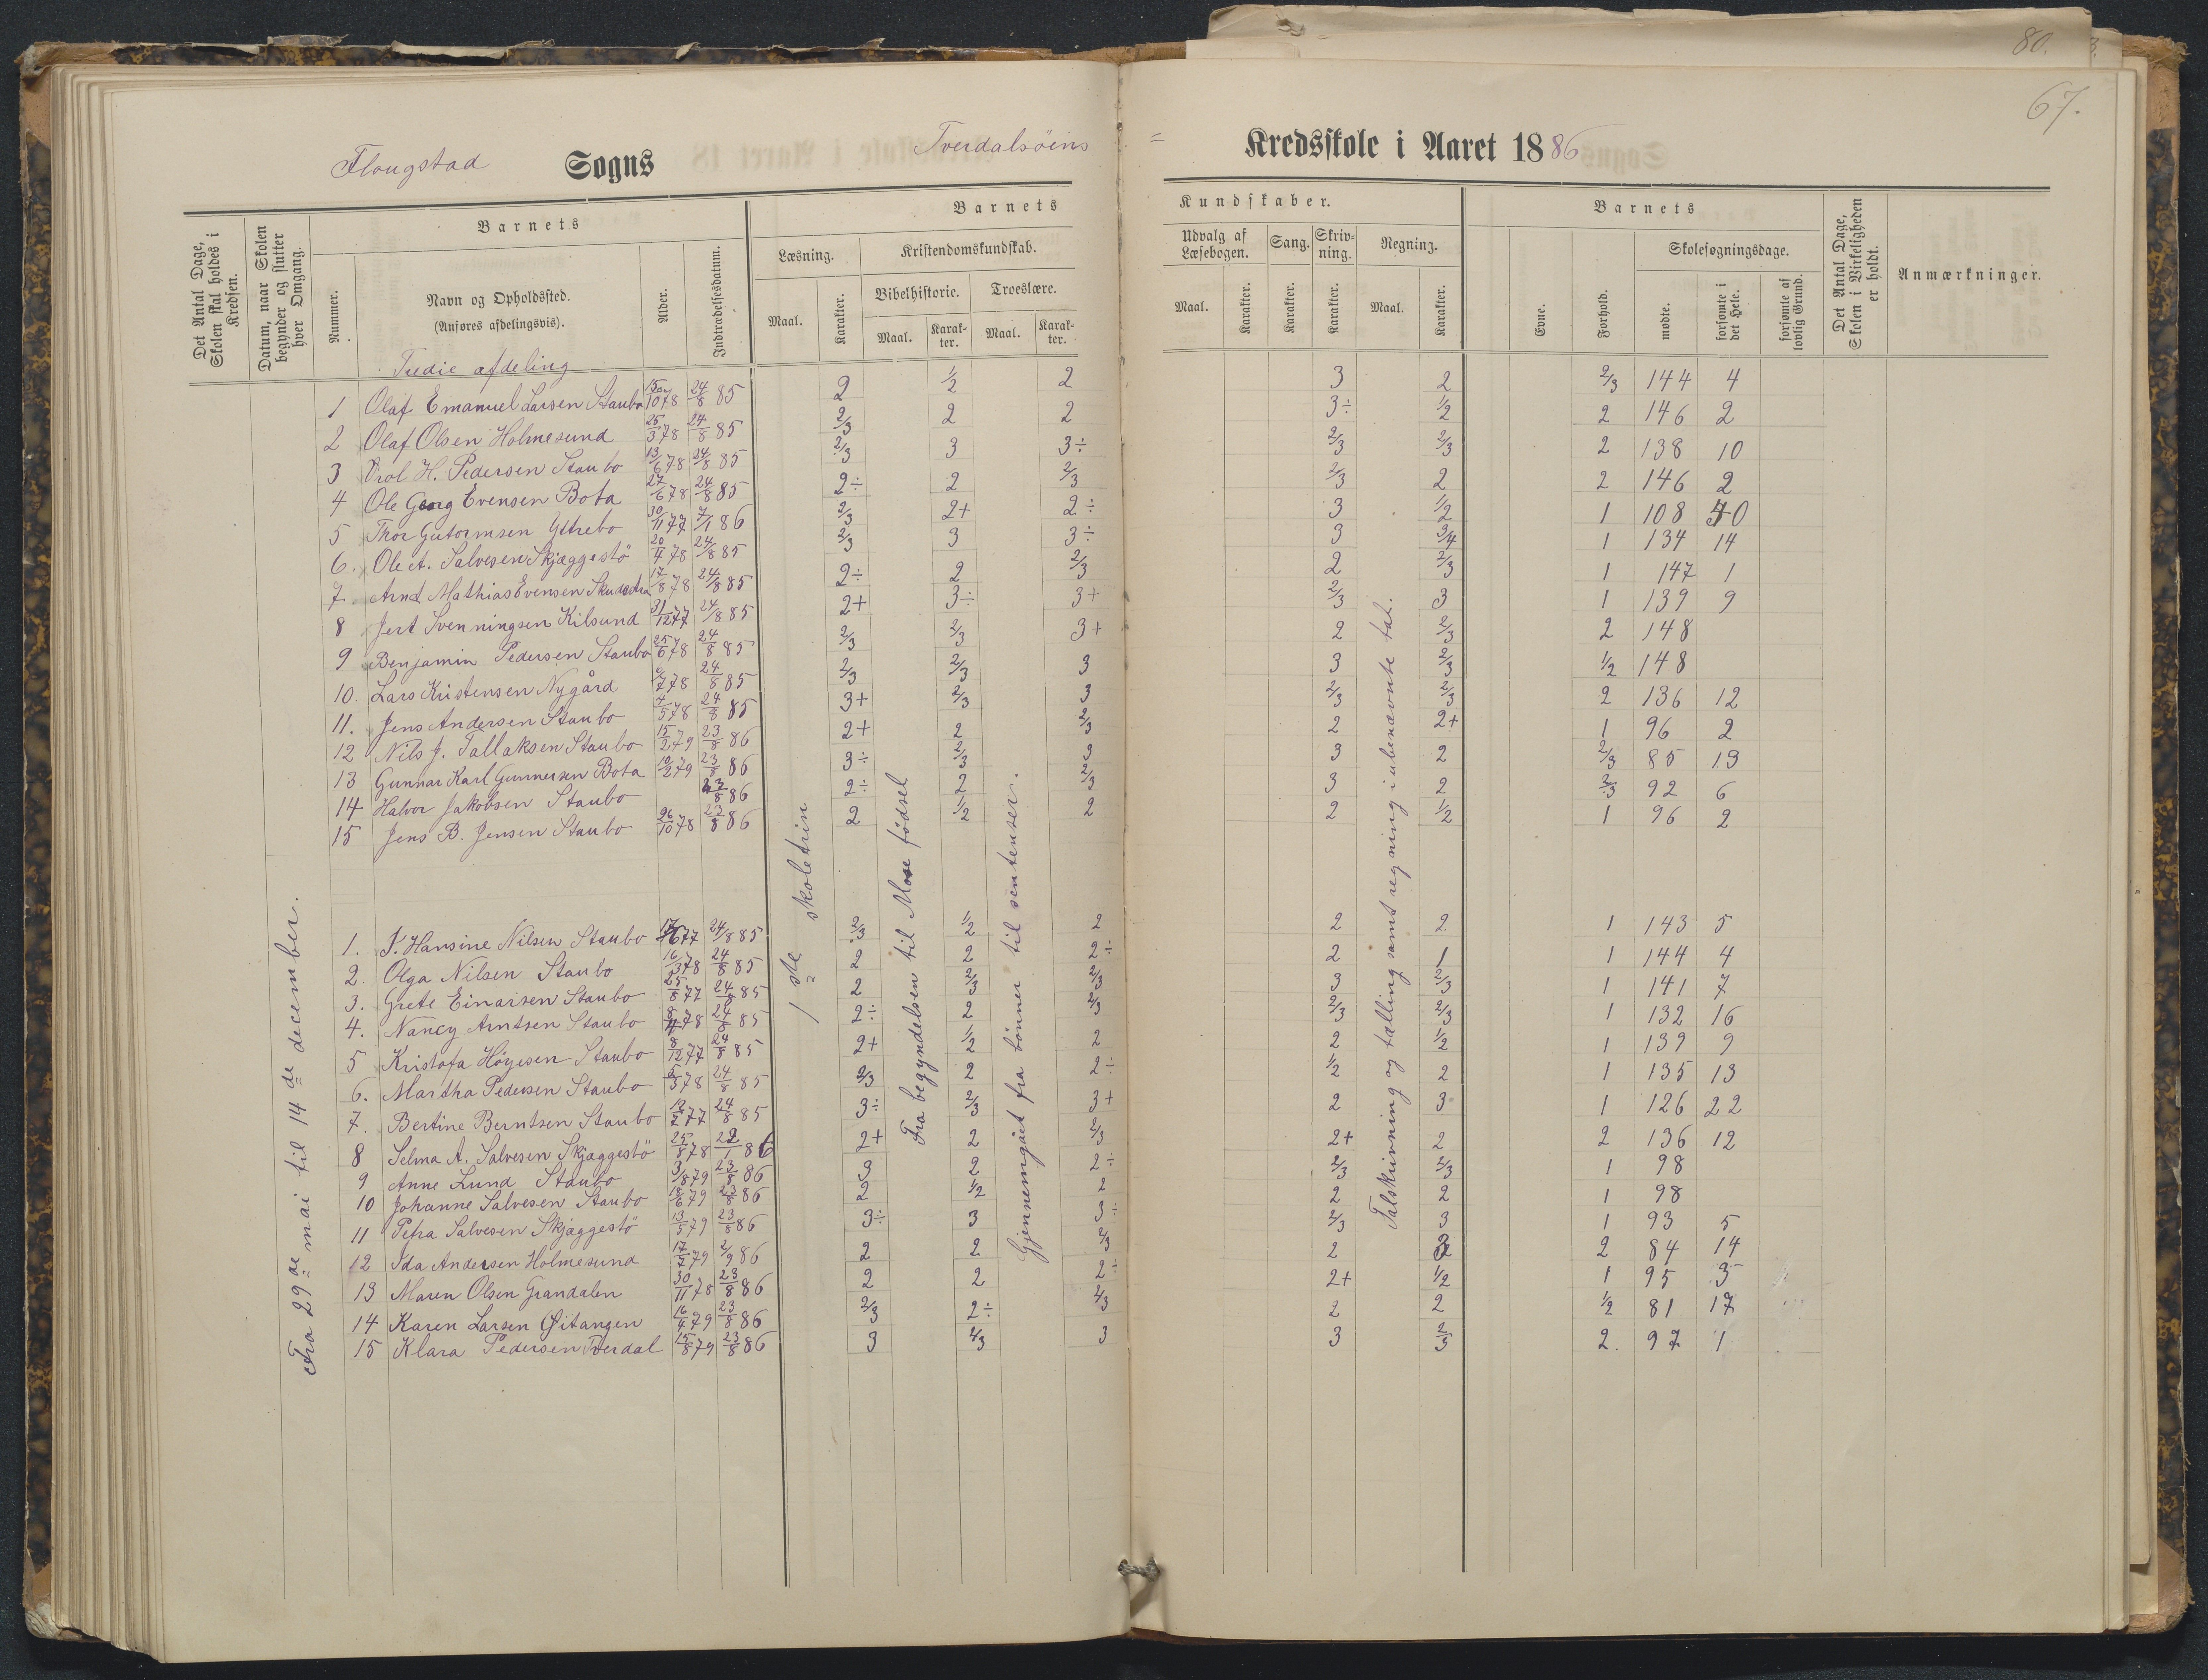 80.
67.
Flougstad Sogns Tverdalsöens = Kredsskole i Aaret 1886
Det Antal Dage, Skolen skal holdes i Kredsen.
Datum, naar Skolen begynder og slutter hver Omgang.
Barnets
Nummer.
Navn og Opholdssted.
(Anføres afdelingsvis).
Alder.
Indtrædelsesdatum.
Barnets Kundskaber.
Læsning. Kristendomskundskab. Udvalg af Læsebogen. Sang. Skrivning. Regning.
Bibelhistorie. Troeslære.
Maal. Karakter. Maal. Karakter. Maal. Karakter. Maal. Karakter. Karakter. Karakter. Maal. Karakter.
Barnets
Evne. Forhold. Skolesøgningsdage.
mødte. forsømte i det Hele. forsømte af lovlig Grund.
Det Antal Dage, Skolen i Virkeligheden er holdt.
Anmærkninger.
Tredie afdeling
1 Olaf Emanuel Larsen Staubo 15/10 78 24/8 85 2 1/2 2 3 2 2/3 144 4
2 Olaf Olsen Holmesund 25/3 78 24/8 85 2/3 2 2 3÷ 1/2 2 146 2
3 H. Pedersen Staubo 13/6 78 24/8 85 2/3 3 3÷ 2/3 2/3 2 138 10
4 Ole Georg Evensen Bota 27/6 78 24/8 85 2÷ 2 2/3 2/3 2 2 146 2
5 Thor Gutormsen Ythebo 30/11 77 7/1 86 2/3 2+ 2÷ 3 1/2 1 108 40
6. Ole A. Salvesen Skjæggestö 20/4 78 24/8 85 2/3 3 3÷ 3 3/4 1 134 14
7. Arnt Mathias Evensen 17/8 78 24/8 85 2÷ 2 2/3 2 2/3 1 147 1
8 Jert Svenningsen Kilsund 31/12 77 24/8 85 2+ 3÷ 3+ 2/3 3 1 139 9
9 Benjamin Pedersen Staubo 25/6 78 24/8 85 2/3 2/3 3+ 2 2/3 2 148
10. Lars Kristensen Nygård 2/7 78 24/8 85 2/3 2/3 3 3 2/3 1/2 148
11. Jens Andersen Staubo 4/5 78 24/8 85 3+ 2/3 3 2/3 2/3 2 136 12
12 Nils J. Tallaksen Staubo 15/2 79 23/8 86 2+ 2 2/3 2 2+ 1 96 2
13 Gunnar Karl Gunnersen Bota 10/2 79 23/8 86 3÷ 2/3 3 3 2 2/3 85 13
14 Halvor Jakobsen Staubo 23/8 86 2÷ 2 2/3 3 2 2/3 92 6
15 Jens B. Jensen Staubo 26/10 78 23/8 86 2 1/2 2 2 1/2 1 96 2
1. J. Hansine Nilsen Staubo 17/6 77 24/8 85 2/3 1/2 2 2 2 1 143 5
2. Olga Nilsen Staubo 16/3 78 24/8 85 2 2 2÷ 2 1 1 144 4
3. Grete Einarsen Staubo 25/8 77 24/8 85 2 2/3 2/3 3 2/3 1 141 7
4. Nancy Arntsen Staubo 8/4 78 24/8 85 2÷ 2 2/3 2/3 2/3 1 132 16
5 Kristofa Höyesen Staubo 8/12 77 24/8 85 2+ 1/2 2 2 1/2 1 139 9
6. Martha Pedersen Staubo 5/3 78 24/8 85 2/3 2 2÷ 1/2 2 1 135 13
7. Bertine Berntsen Staubo 12/7 77 24/8 85 3÷ 2/3 3+ 2 3 1 126 22
8 Selma A. Salvesen Skjæggestö 25/8 78 22/1 86 2+ 2 2/3 2+ 2 2 136 12
9 Anne Lund Staubo 3/8 79 23/8 86 3 2 2÷ 2/3 2/3 1 98
10 Johanne Salvesen Staubo 18/6 79 23/8 86 2 1/2 2 2 2 1 98
11 Petra Salvesen Skjæggestö 13/5 79 23/8 86 3÷ 3 3÷ 2/3 3 1 93 5
12 Ida Andersen Holmesund 17/7 79 2/9 86 2 2 2/3 2 2 2 84 14
13 Maren Olsen Grandalen 30/11 78 23/8 86 2 2 2÷ 2+ 1/2 1 95 3
14 Karen Larsen Öitangen 16/4 79 23/8 86 2/3 2÷ 2/3 2 2 1/2 81 17
15 Klara Pedersen Tverdal 15/8 79 23/8 86 3 2/3 3 3 2/3 2. 97 1
Fra 29de mai til 14de december.
1ste skoletrin
Fra begyndelsen til Mose födsel
Gjennemgået fra bönner til sentenser.
Talskrivning og tælling samt regning i ubenævnte tal.